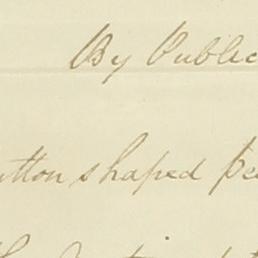 By Public
utton shaped pe